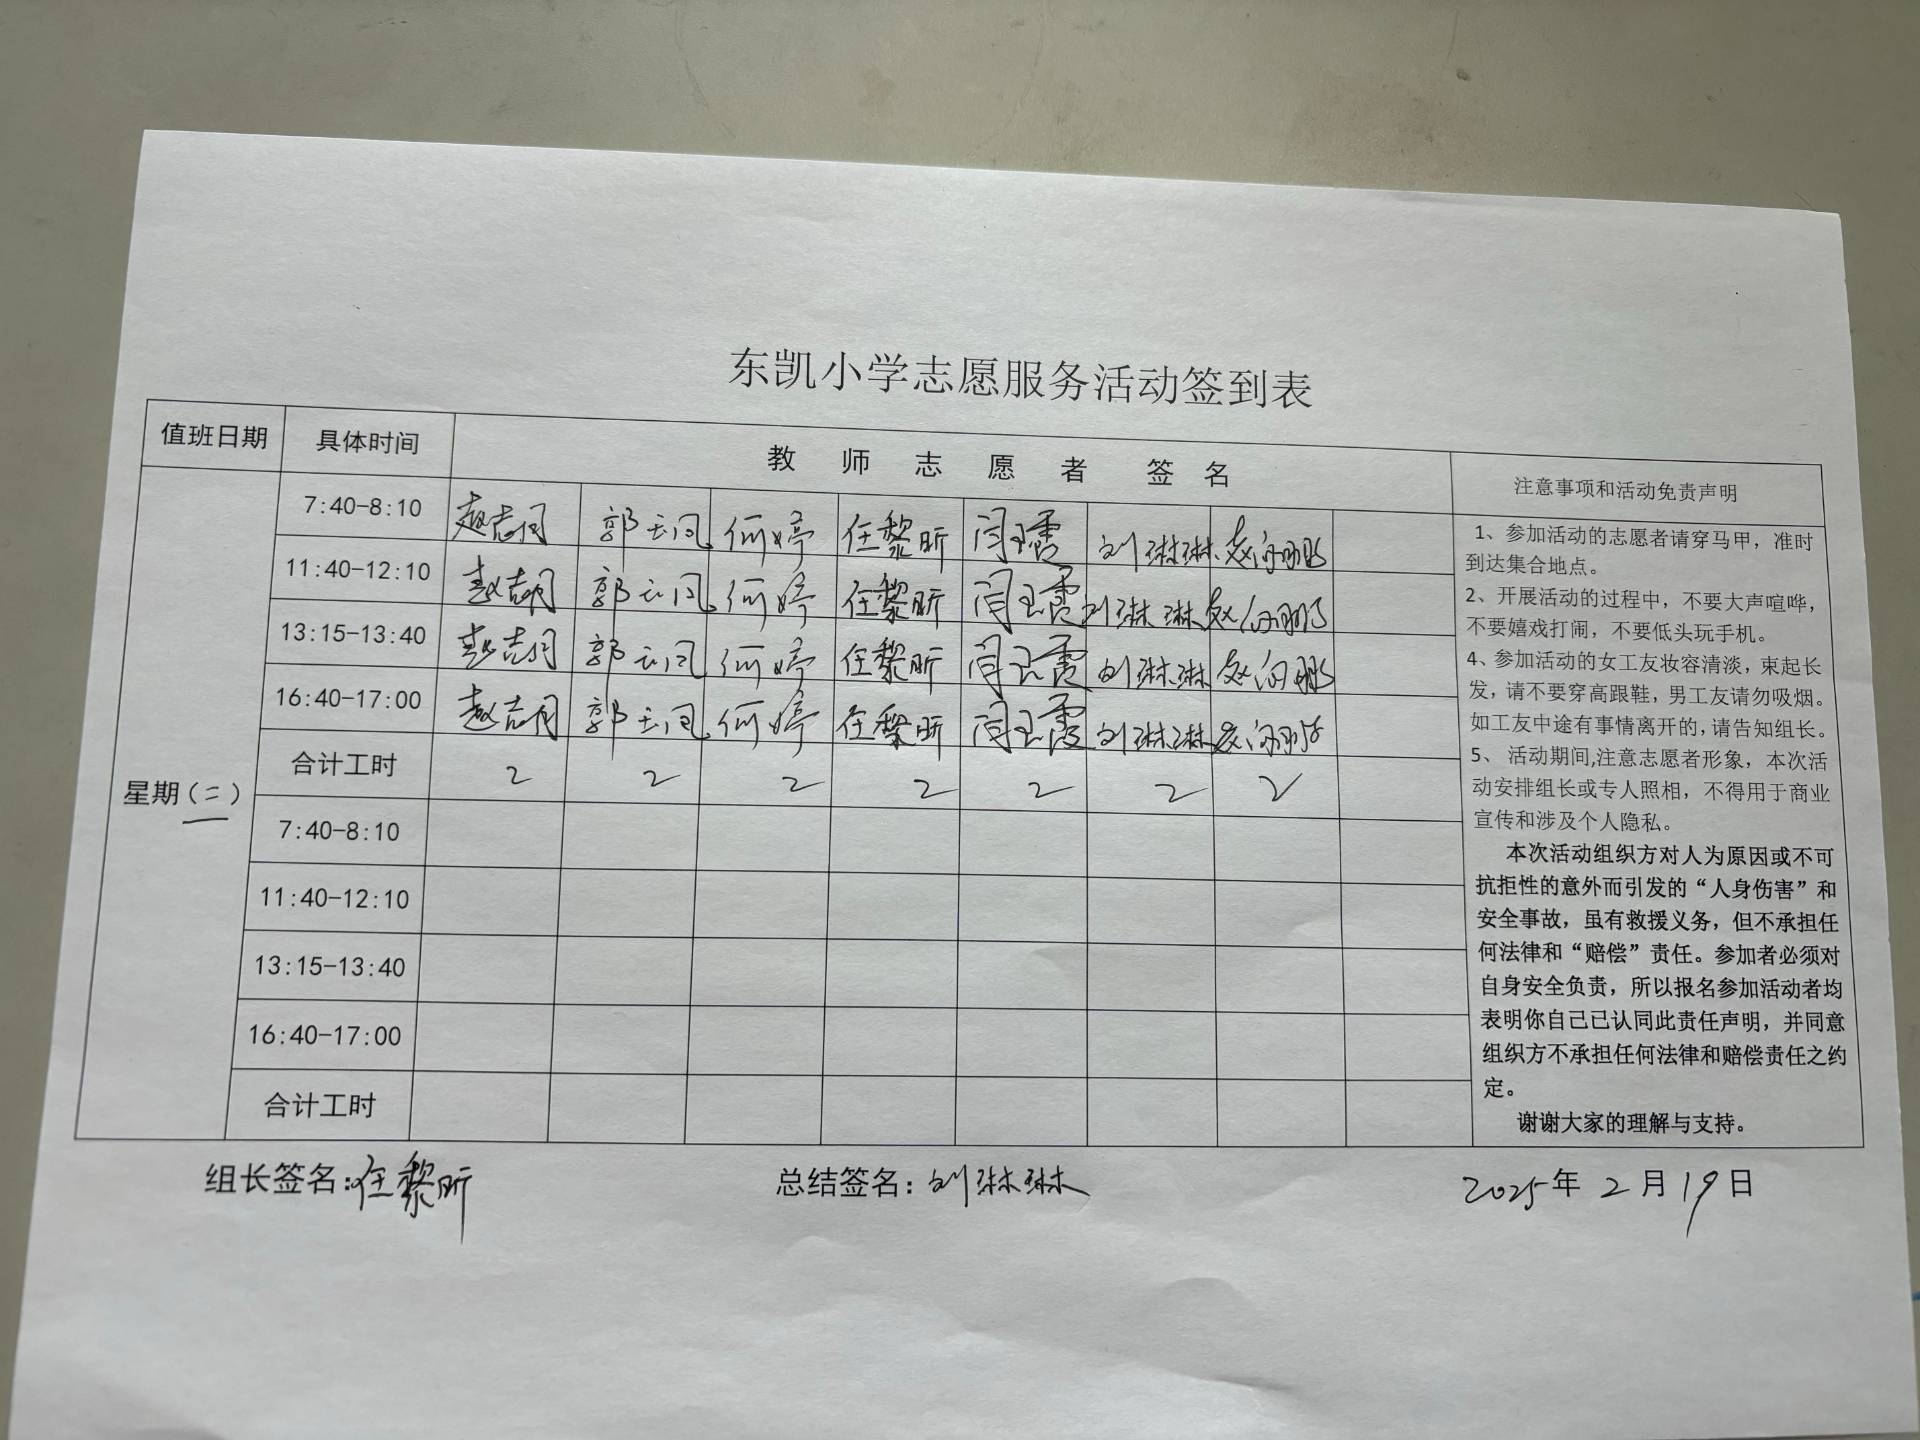 东凯小学志愿服务活动签到表
值班日期 具体时间 教师志愿者签名 注意事项和活动免责声明
星期(二)
7:40-8:10 郭 何婷 任黎昕 闫玉霞 刘琳琳 赵
11:40-12:10 赵 郭 何婷 任黎昕 闫玉霞 刘琳琳 赵
13:15-13:40 赵 郭 何婷 任黎昕 闫玉霞 刘琳琳 赵
16:40-17:00 赵 郭 何婷 任黎昕 闫玉霞 刘琳琳
合计工时 2 2 2 2 2 2 2
7:40-8:10
11:40-12:10
13:15-13:40
16:40-17:00
合计工时
1、参加活动的志愿者请穿马甲，准时
到达集合地点。
2、开展活动的过程中，不要大声喧哗，
不要嬉戏打闹，不要低头玩手机。
4、参加活动的女工友妆容清淡，束起长
发，请不要穿高跟鞋，男工友请勿吸烟。
如工友中途有事情离开的，请告知组长。
5、活动期间,注意志愿者形象，本次活
动安排组长或专人照相，不得用于商业
宣传和涉及个人隐私。
本次活动组织方对人为原因或不可
抗拒性的意外而引发的“人身伤害”和
安全事故，虽有救援义务，但不承担任
何法律和“赔偿”责任。参加者必须对
自身安全负责，所以报名参加活动者均
表明你自己已认同此责任声明，并同意
组织方不承担任何法律和赔偿责任之约
定。
谢谢大家的理解与支持。
组长签名：任黎昕 总结签名：刘琳琳 2025年2月19日